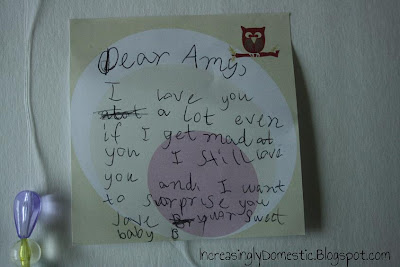 Dear Amy,
I love you
a lot even
if I get mad at
you I still love
you and I want
to surprise you
love your sweet
baby B
IncreasinglyDomestic.Blogspot.com